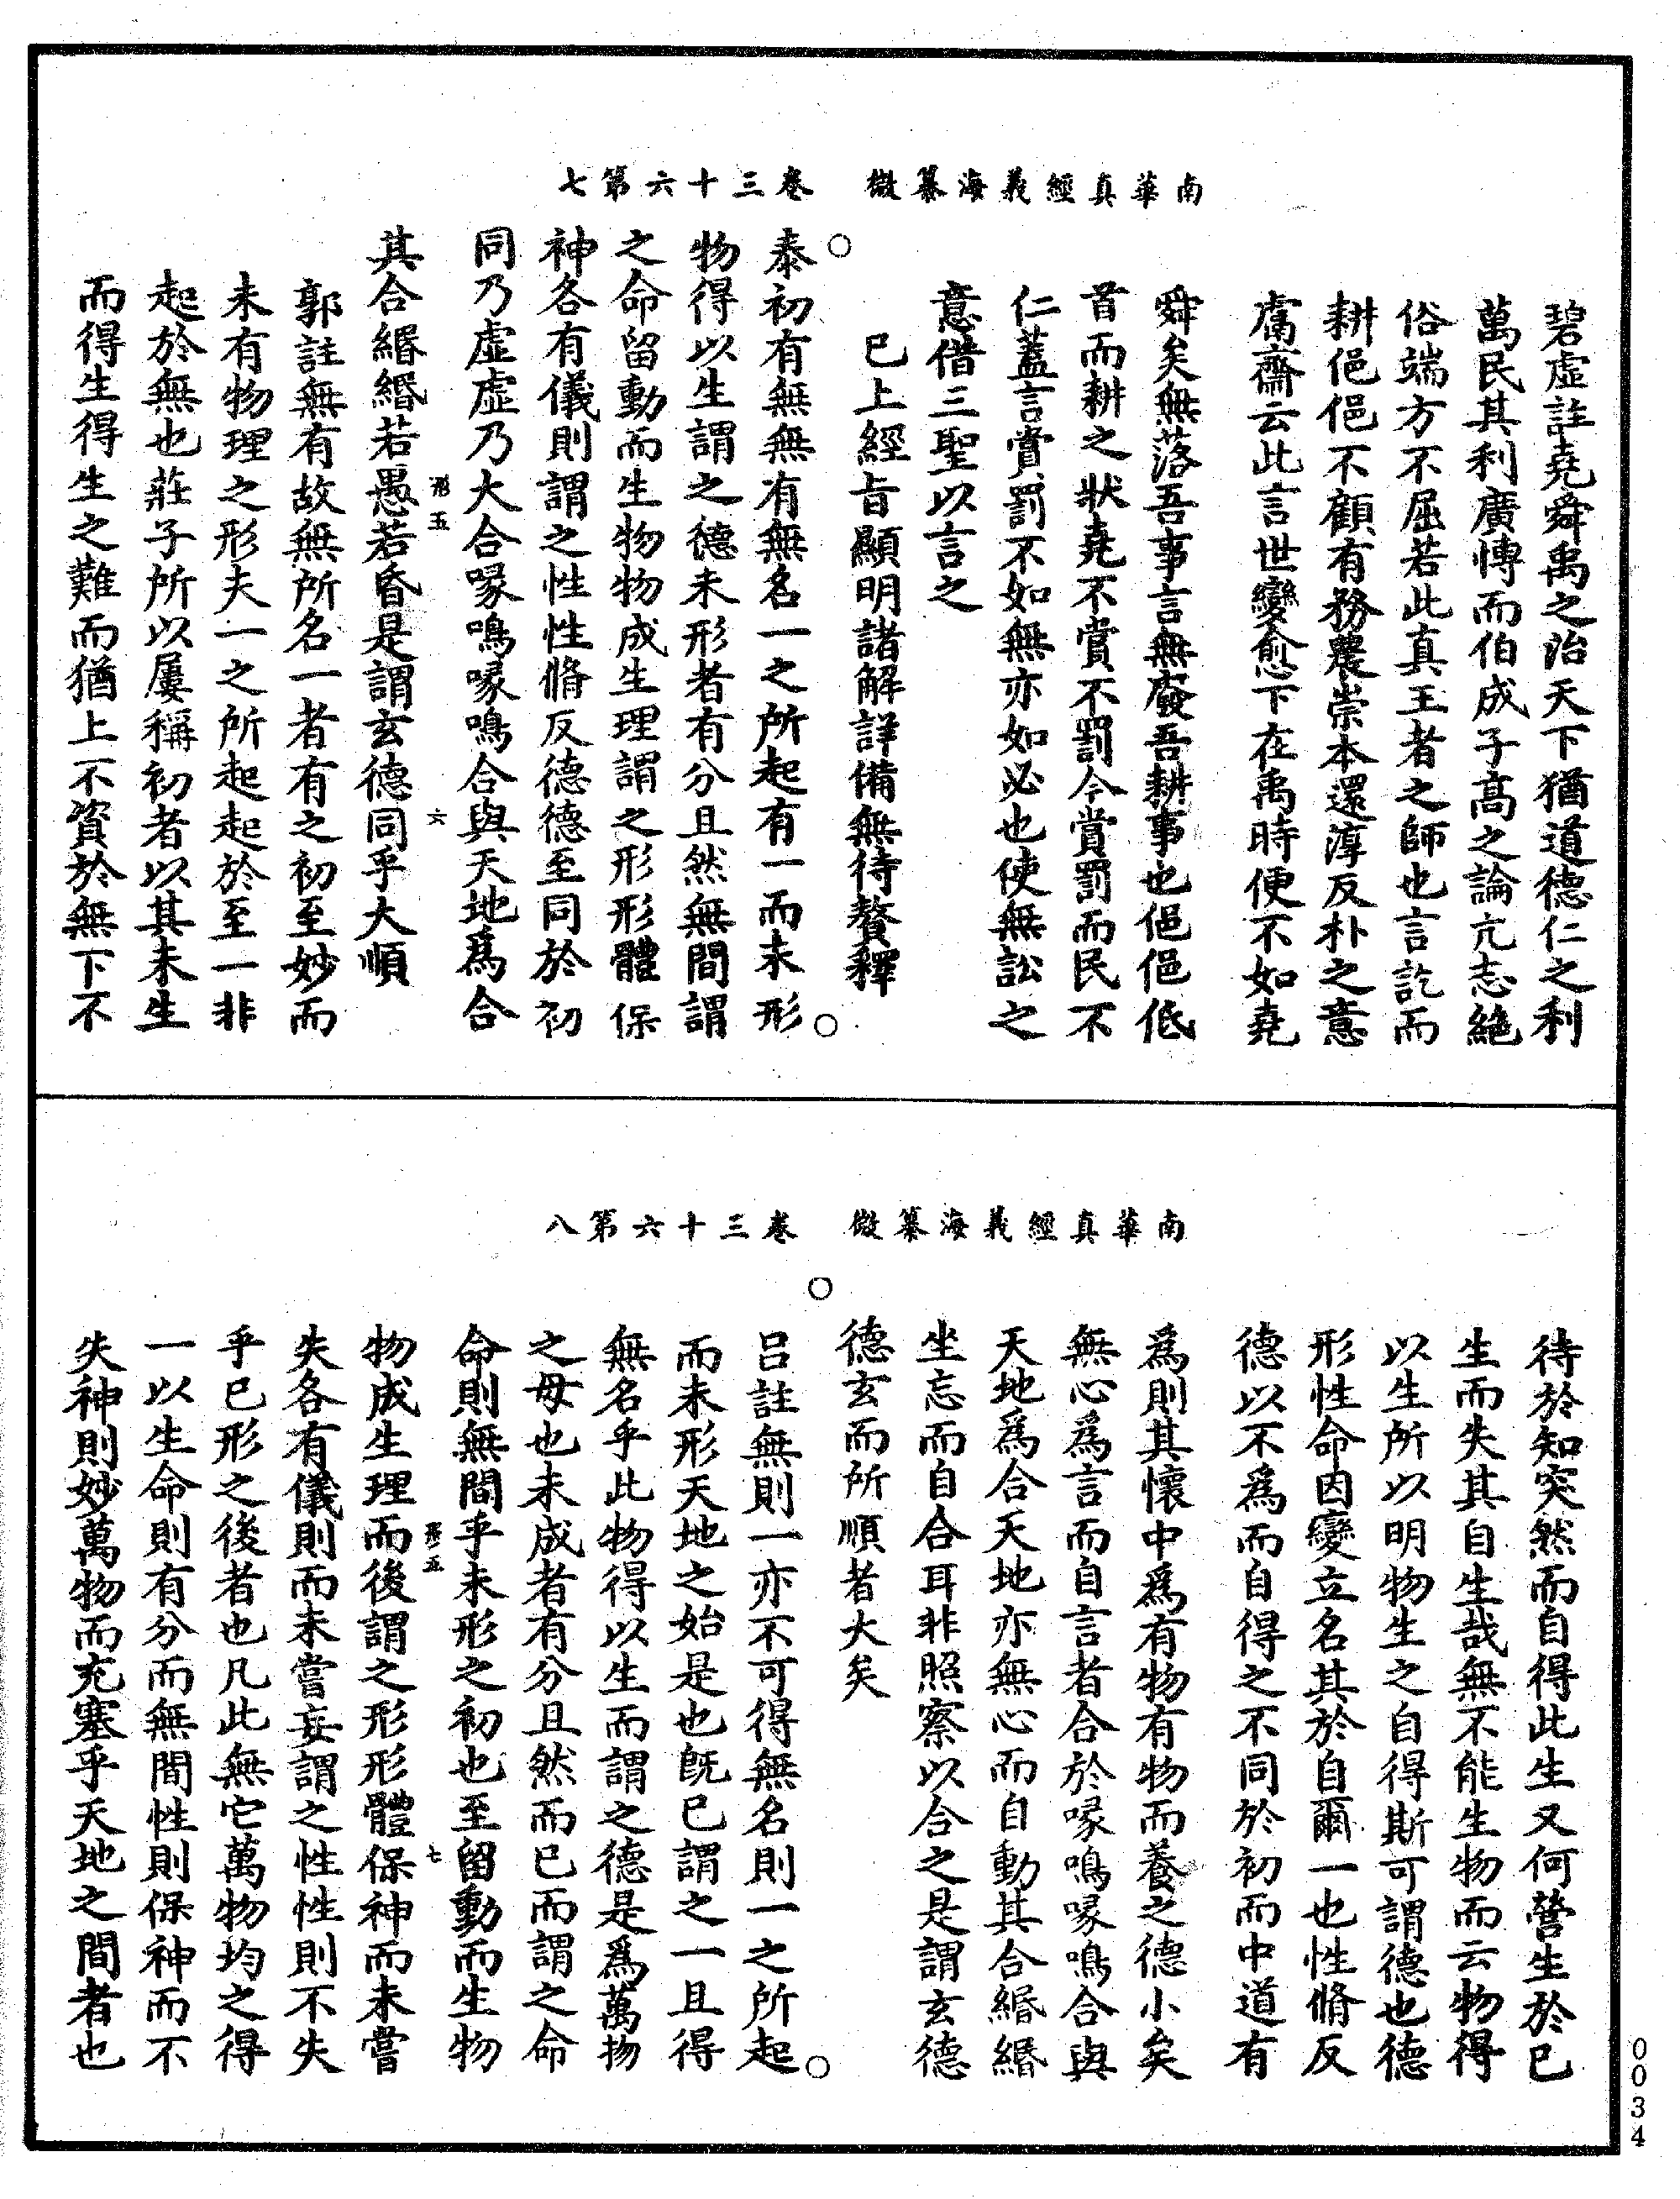 南華真經義海纂微　卷三十六第七
碧虛註堯舜禹之治天下猶道德仁之利
萬民其利廣慱而伯成子高之論亢志絕
俗端方不屈若此真王者之師也言訖而
耕俋俋不顧有務農崇本還淳反朴之意
鬳齋云此言世變愈下在禹時便不如堯
舜矣無落吾事言無廢吾耕事也俋俋低
首而耕之狀堯不賞不罰今賞罰而民不
仁蓋言賞罰不如無亦如必也使無訟之
意借三聖以言之
已上經旨顯明諸解詳備無待贅釋
泰初有無無有無名一之所起有一而未形
物得以生謂之德未形者有分且然無間謂
之命留動而生物物成生理謂之形形體保
神各有儀則謂之性性脩反德德至同於初
同乃虛虛乃大合喙鳴喙鳴合與天地為合
形五　六
其合緡緡若愚若昏是謂玄德同乎大順
郭註無有故無所名一者有之初至妙而
未有物理之形夫一之所起起於至一非
起於無也莊子所以屢稱初者以其未生
而得生得生之難而猶上不資於無下不
南華真經義海纂微　卷三十六第八
待於知突然而自得此生又何營生於已
生而失其自生哉無不能生物而云物得
以生所以明物生之自得斯可謂德也德
形性命因變立名其於自爾一也性脩反
德以不為而自得之不同於初而中道有
為則其懷中為有物有物而養之德小矣
無心為言而自言者合於喙鳴喙鳴合與
天地為合天地亦無心而自動其合緡緡
坐忘而自合耳非照察以合之是謂玄德
德玄而所順者大矣
呂註無則一亦不可得無名則一之所起
而未形天地之始是也既已謂之一且得
無名乎此物得以生而謂之德是為萬物
之母也未成者有分且然而已而謂之命
命則無間乎未形之初也至留動而生物
形五　七
物成生理而後謂之形形體保神而未嘗
失各有儀則而未嘗妄謂之性性則不失
乎已形之後者也凡此無它萬物均之得
一以生命則有分而無間性則保神而不
失神則妙萬物而充塞乎天地之間者也
0034